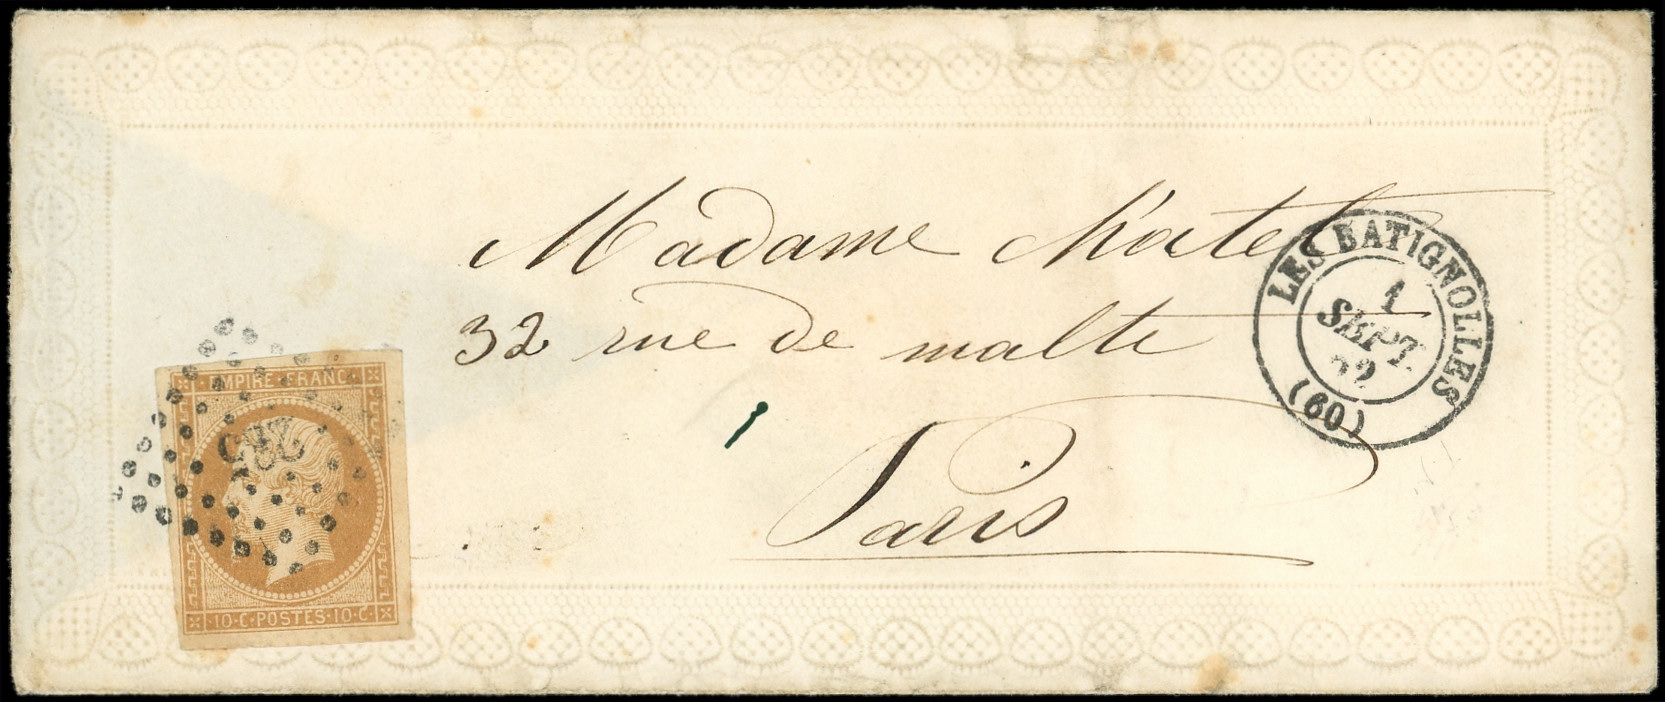 Madame
32 rue de malte
Paris
LES BATIGNOLLES
1
SEPT.
(60)
EMPIRE · FRANC ·
10 · C · POSTES · 10 · C ·